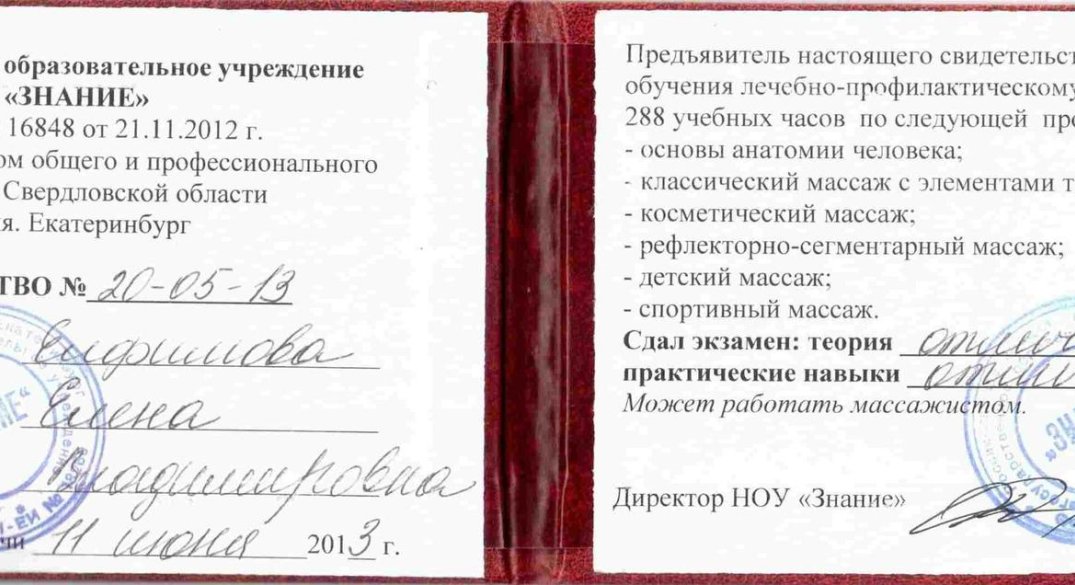 образовательное учреждение
«ЗНАНИЕ»
16848 от 21.11.2012 г.
ом общего и профессионального
Свердловской области
я. Екатеринбург
ТВО № 20-05-13
Елена
Владимировна
чи 11 июня 2013 г.
Предъявитель настоящего свидетельст
обучения лечебно-профилактическому
288 учебных часов по следующей про
- основы анатомии человека;
- классический массаж с элементами т
- косметический массаж;
- рефлекторно-сегментарный массаж;
- детский массаж;
- спортивный массаж.
Сдал экзамен: теория отлич
практические навыки отли
Может работать массажистом.
Директор НОУ «Знание»